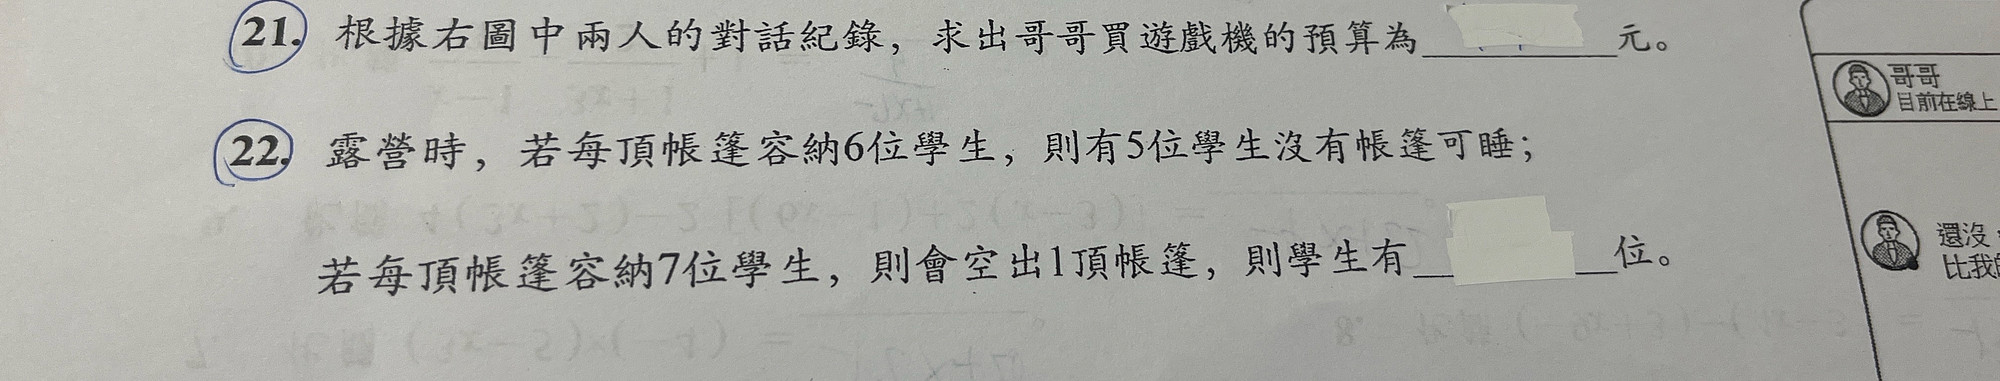 21. 根據右圖中兩人的對話紀錄，求出哥哥買遊戲機的預算為＿＿＿＿元。
哥哥
目前在線上
22. 露營時，若每頂帳篷容納6位學生，則有5位學生沒有帳篷可睡；
若每頂帳篷容納7位學生，則會空出1頂帳篷，則學生有＿＿＿＿位。
還沒
比我